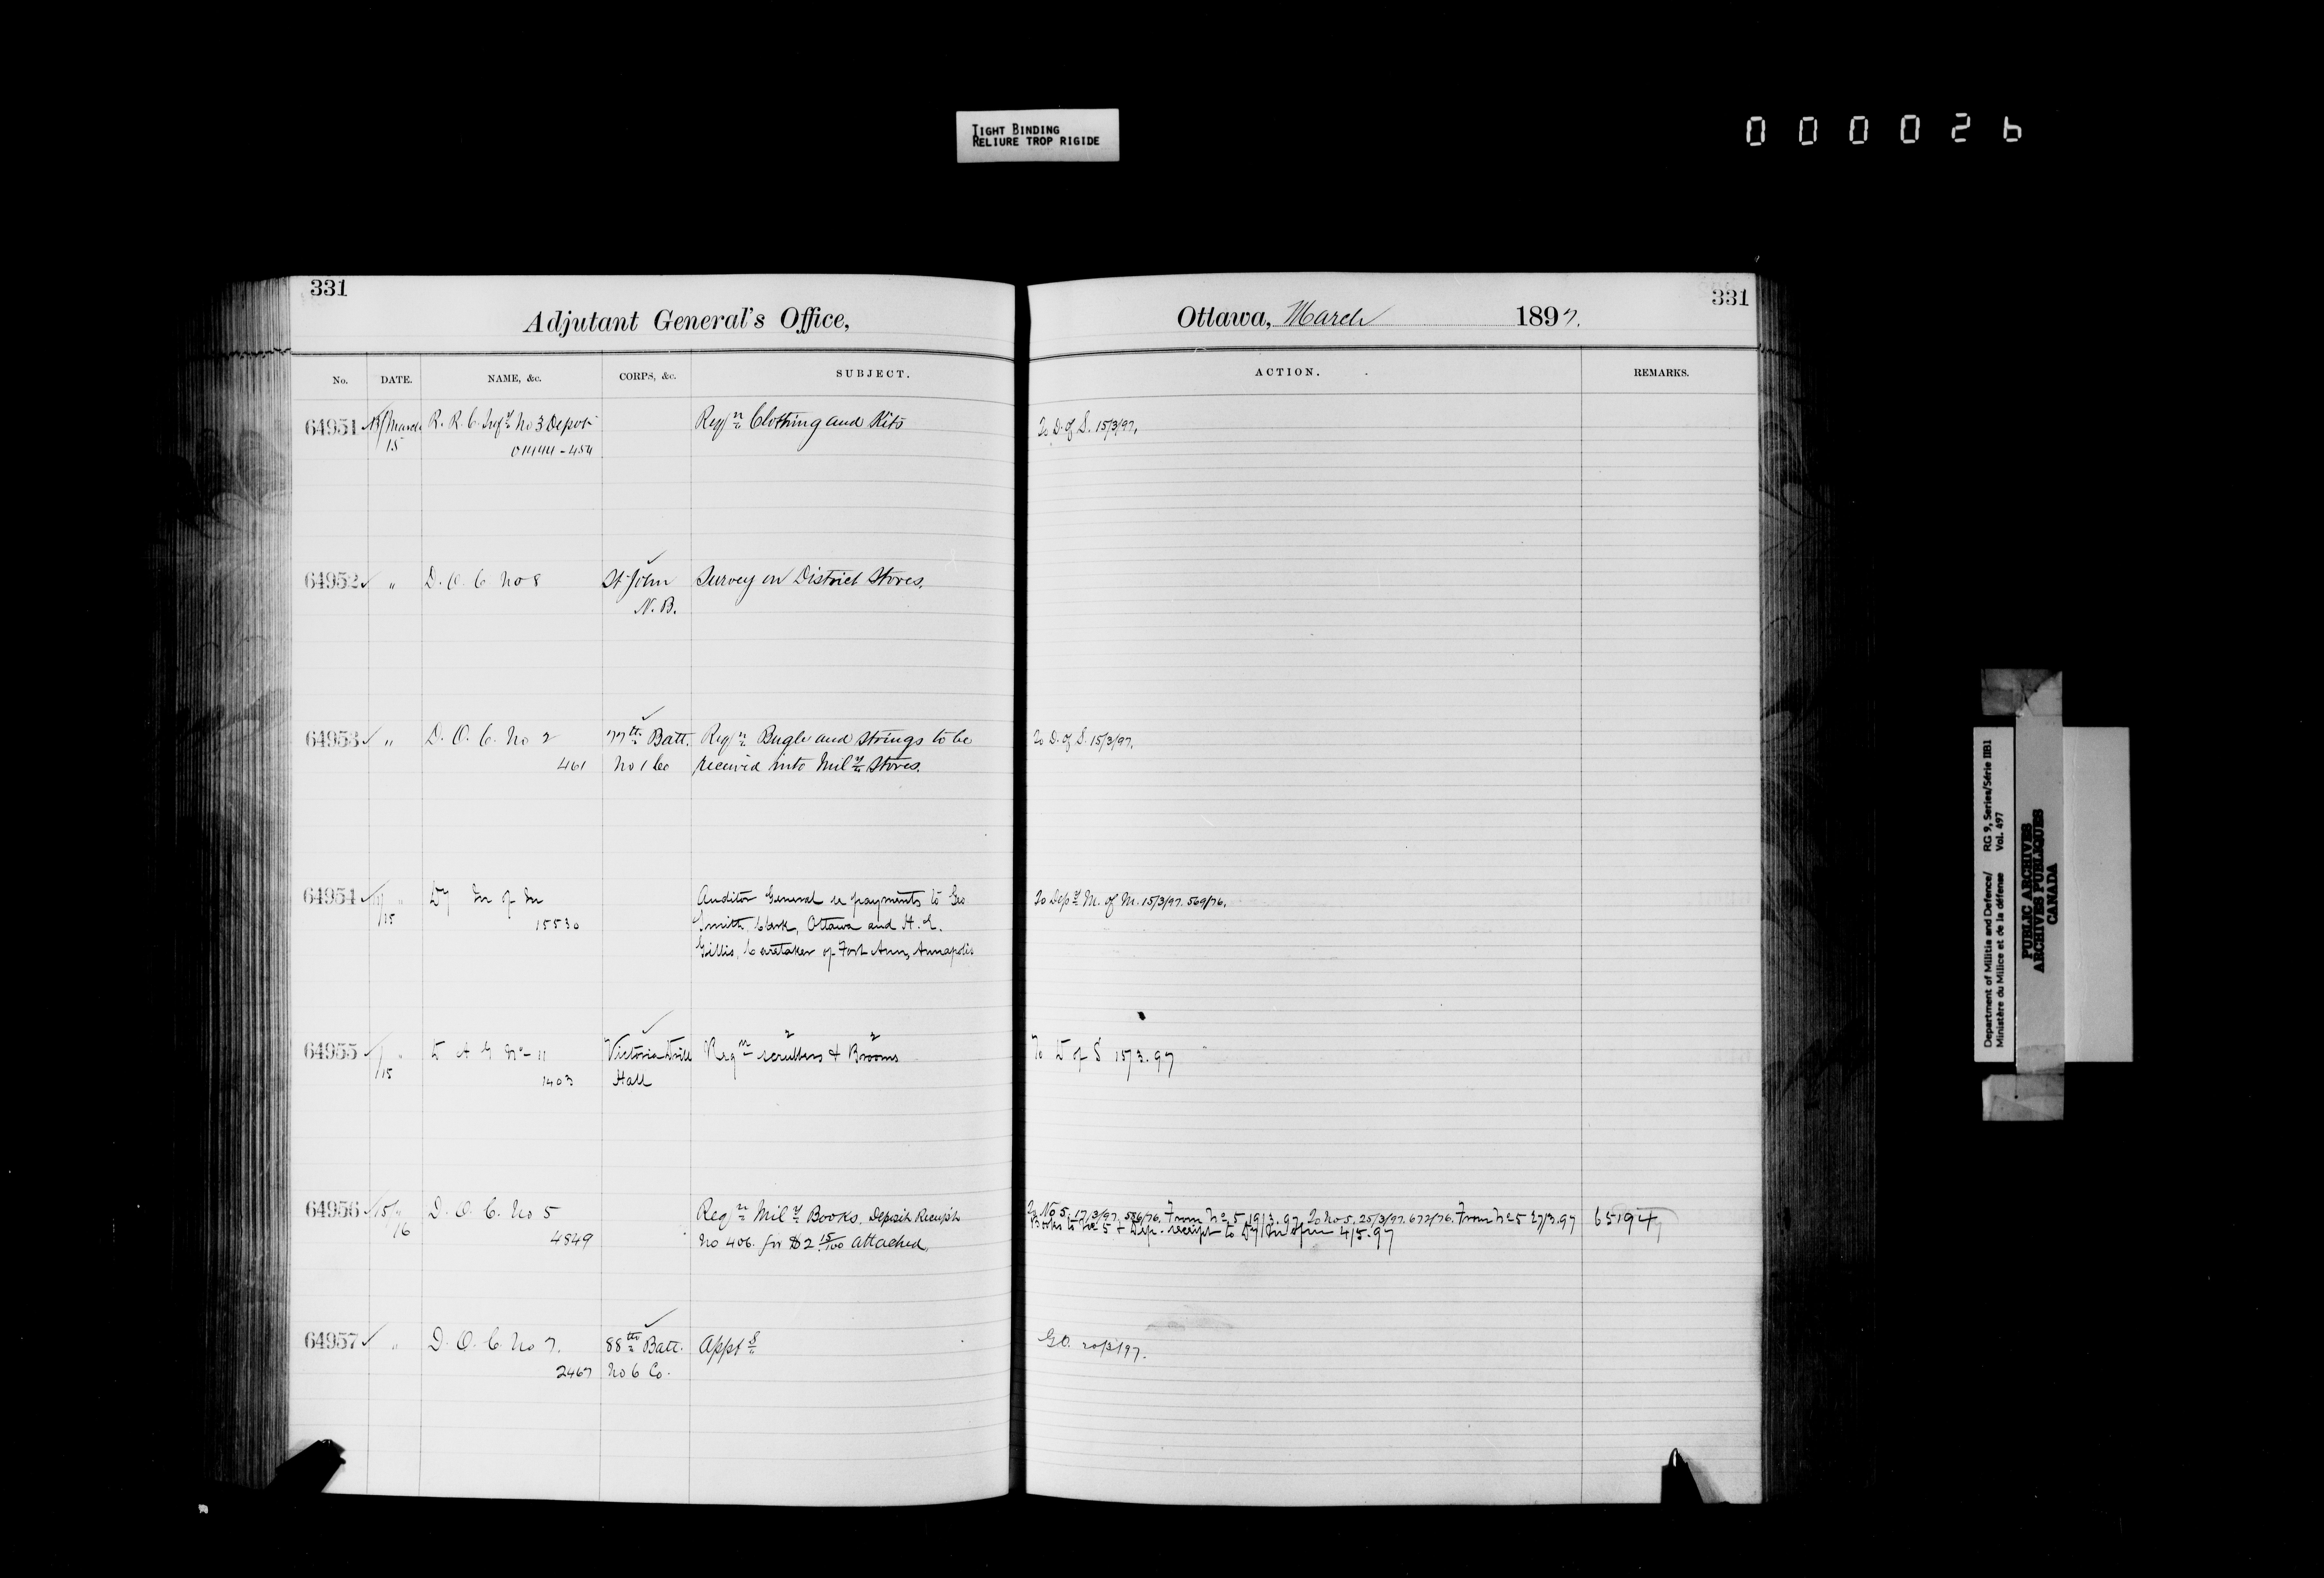 TIGHT BINDING
RELIURE TROP RIGIDE
0 0 0 0 2 6
331
Adjutant General's Office,
Ottawa, March 1897.
331
No. DATE. NAME, &c. CORPS, &c. SUBJECT. ACTION. REMARKS.
64951 March R. R. C. Infy No 3 Depot Reqn Clothing and Kits To D. of S. 15/3/97.
15
64952 " D. O. C. No 8 St John Survey on District Stores.
N. B.
64953 " D. O. C. No 2 77th Batt. Reqn Bugle and strings to be To D. of S. 15/3/97.
461 No 1 Co received into Mily Stores.
64954 " Dy M of M Auditor General re payments to Geo To Depy M. of M. 15/3/97. 569/76.
15 15530 Smith, Clerk, Ottawa and H. E.
Gillis, Caretaker of Fort Ann, Annapolis
64955 " D A G No 11 Victoria Drill Reqn 2 scrubbers & 2 Brooms To D of S 15/3.97
15 1403 Hall
64956 15/ " D. O. C. No 5 Reqn Mily Books. Deposit Receipt To No 5. 17/3/97. 586/76. From No 5 19/3.97 To No 5. 25/3/97. 672/76. From No 5 27/3.97 65194
16 4849 No 406. for $2 15/100 attached. Books to No 5 & Dep. receipt to Dy Min 4/5.97
64957 " D. O. C. No 7. 88th Batt. Appts G.O. 20/3/97.
2467 No 6 Co.
Department of Militia and Defence/ RG 9, Series/Série IIB1
Ministère du Milice et de la défense Vol. 497
PUBLIC ARCHIVES
ARCHIVES PUBLIQUES
CANADA